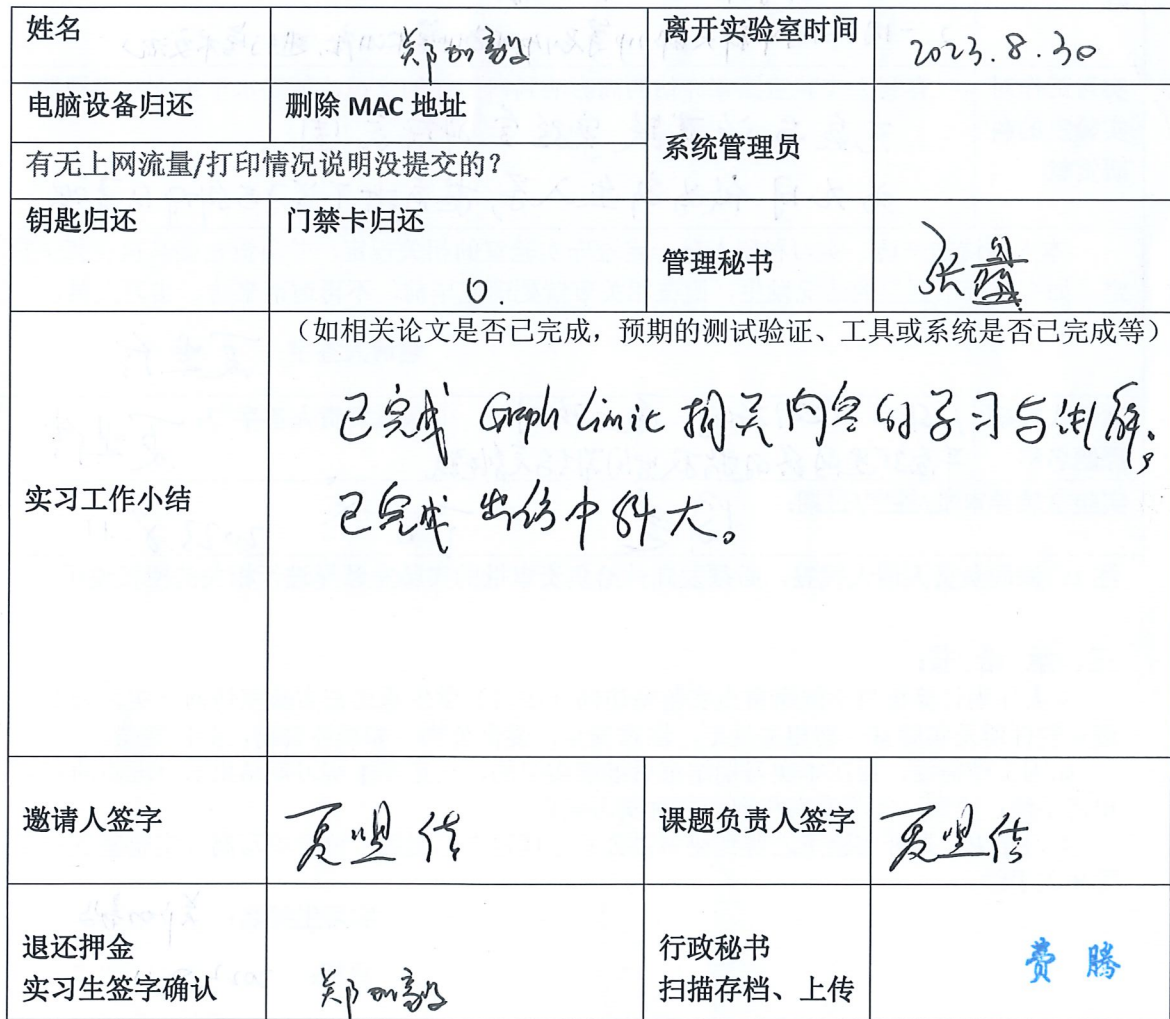 姓名
郑加毅
离开实验室时间
2023.8.30
电脑设备归还
删除 MAC 地址
系统管理员
有无上网流量/打印情况说明没提交的?
钥匙归还
门禁卡归还
0.
管理秘书
张
实习工作小结
（如相关论文是否已完成，预期的测试验证、工具或系统是否已完成等）
已完成 Graph 相关内容的学习与
已完成
邀请人签字
夏
课题负责人签字
夏
退还押金
实习生签字确认
郑加毅
行政秘书
扫描存档、上传
费腾